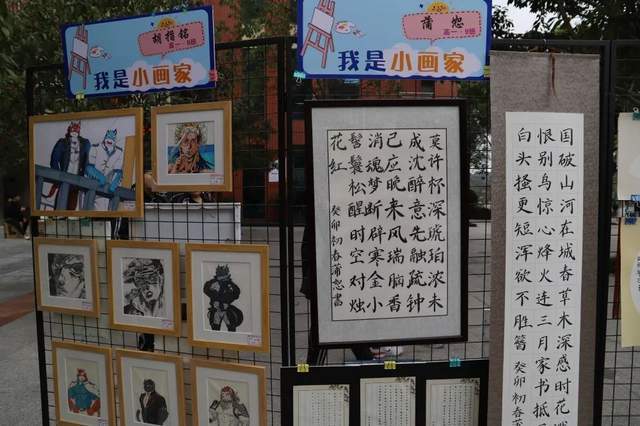 胡指铭
高一·9班
我是小画家
高一·9班
我是小画家
莫许杯深琥珀浓未
成沈醉意先融疏钟
已应晚来风瑞脑香
消魂梦断辟寒金小
髻鬟松醒时空对烛
花红 癸卯初春蒲恕书
国破山河在城春草木深感时花
恨别鸟惊心烽火连三月家书抵
白头搔更短浑欲不胜簪 癸卯初春